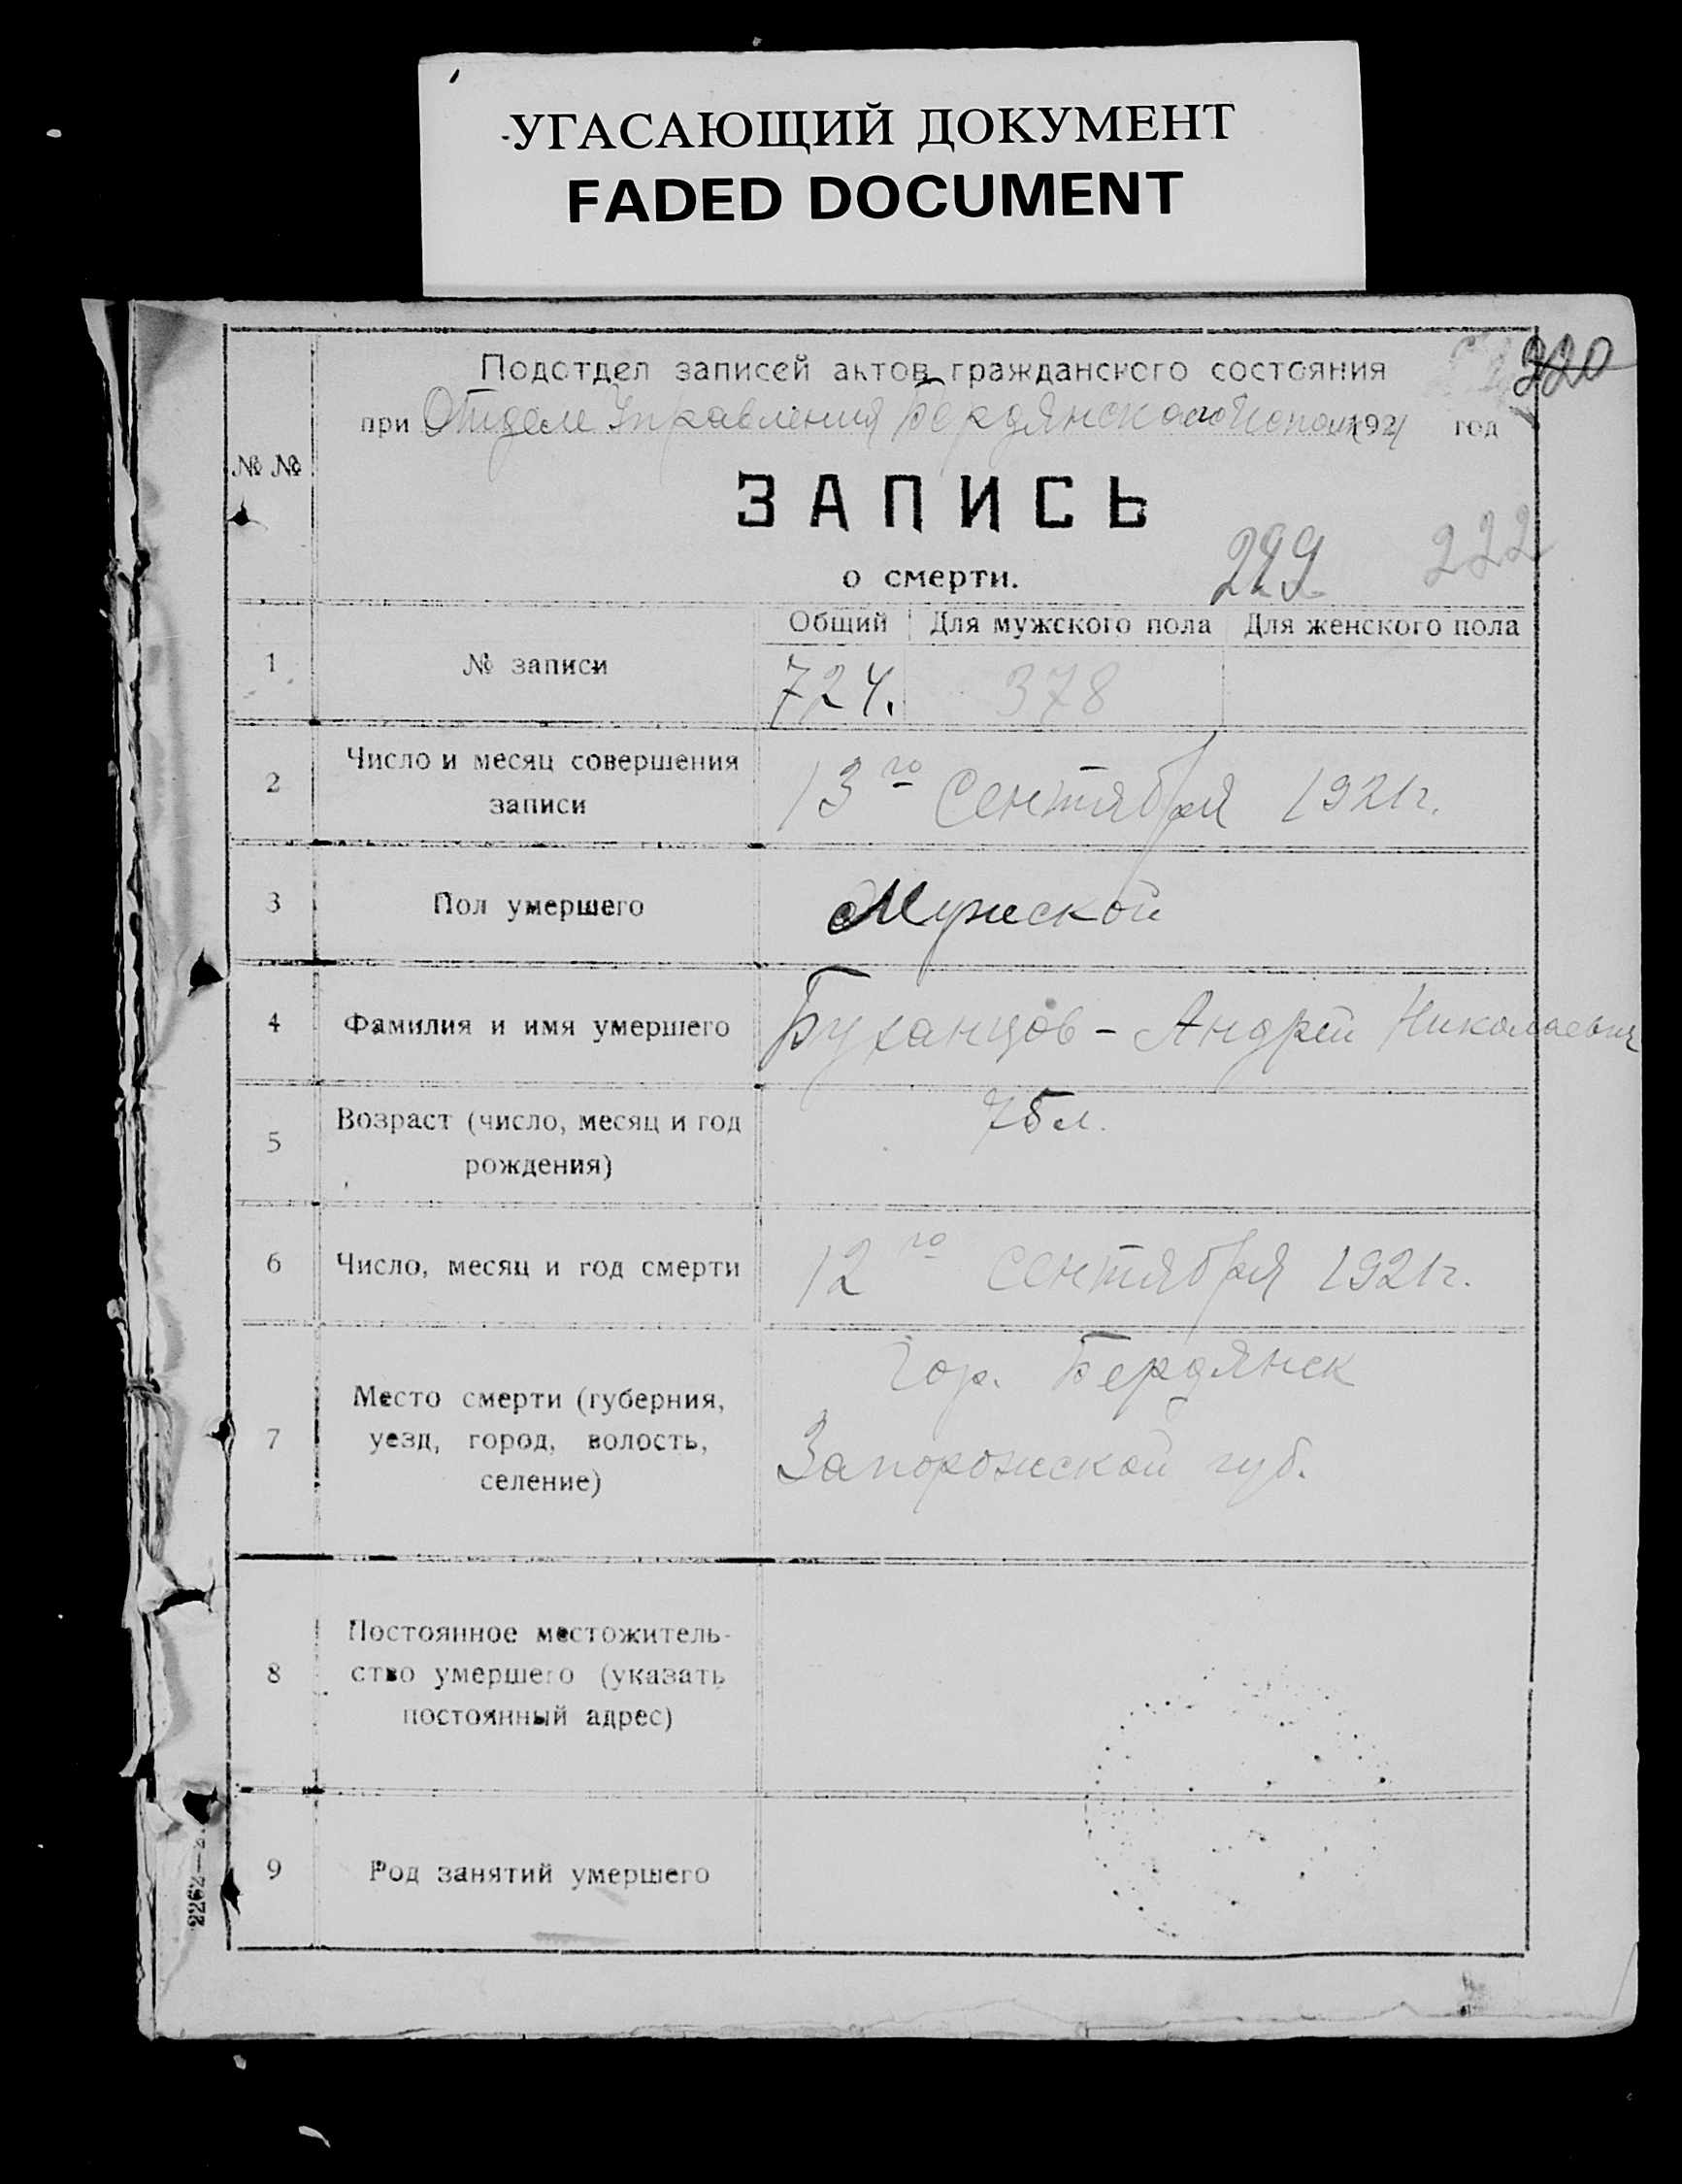 УГАСАЮЩИЙ ДОКУМЕНТ
FADED DOCUMENT
320
Подотдел записей актов гражданского состояния
при Отделе Управления Бердянского Исполк 1921 год
№ №
ЗАПИСЬ
о смерти.
299 222
Общий Для мужского пола Для женского пола
1 № записи 724. 378
2 Число и месяц совершения
записи
13го Сентября 1921г.
3 Пол умершего Мужской
4 Фамилия и имя умершего Буханцов - Андрей Николаевич
5 Возраст (число, месяц и год
рождения)
75 л.
6 Число, месяц и год смерти 12го сентября 1921г.
7 Место смерти (губерния,
уезд, город, волость,
селение)
Гор. Бердянск
Запорожской губ.
8 Постоянное местожитель-
ство умершего (указать
постоянный адрес)
9 Род занятий умершего